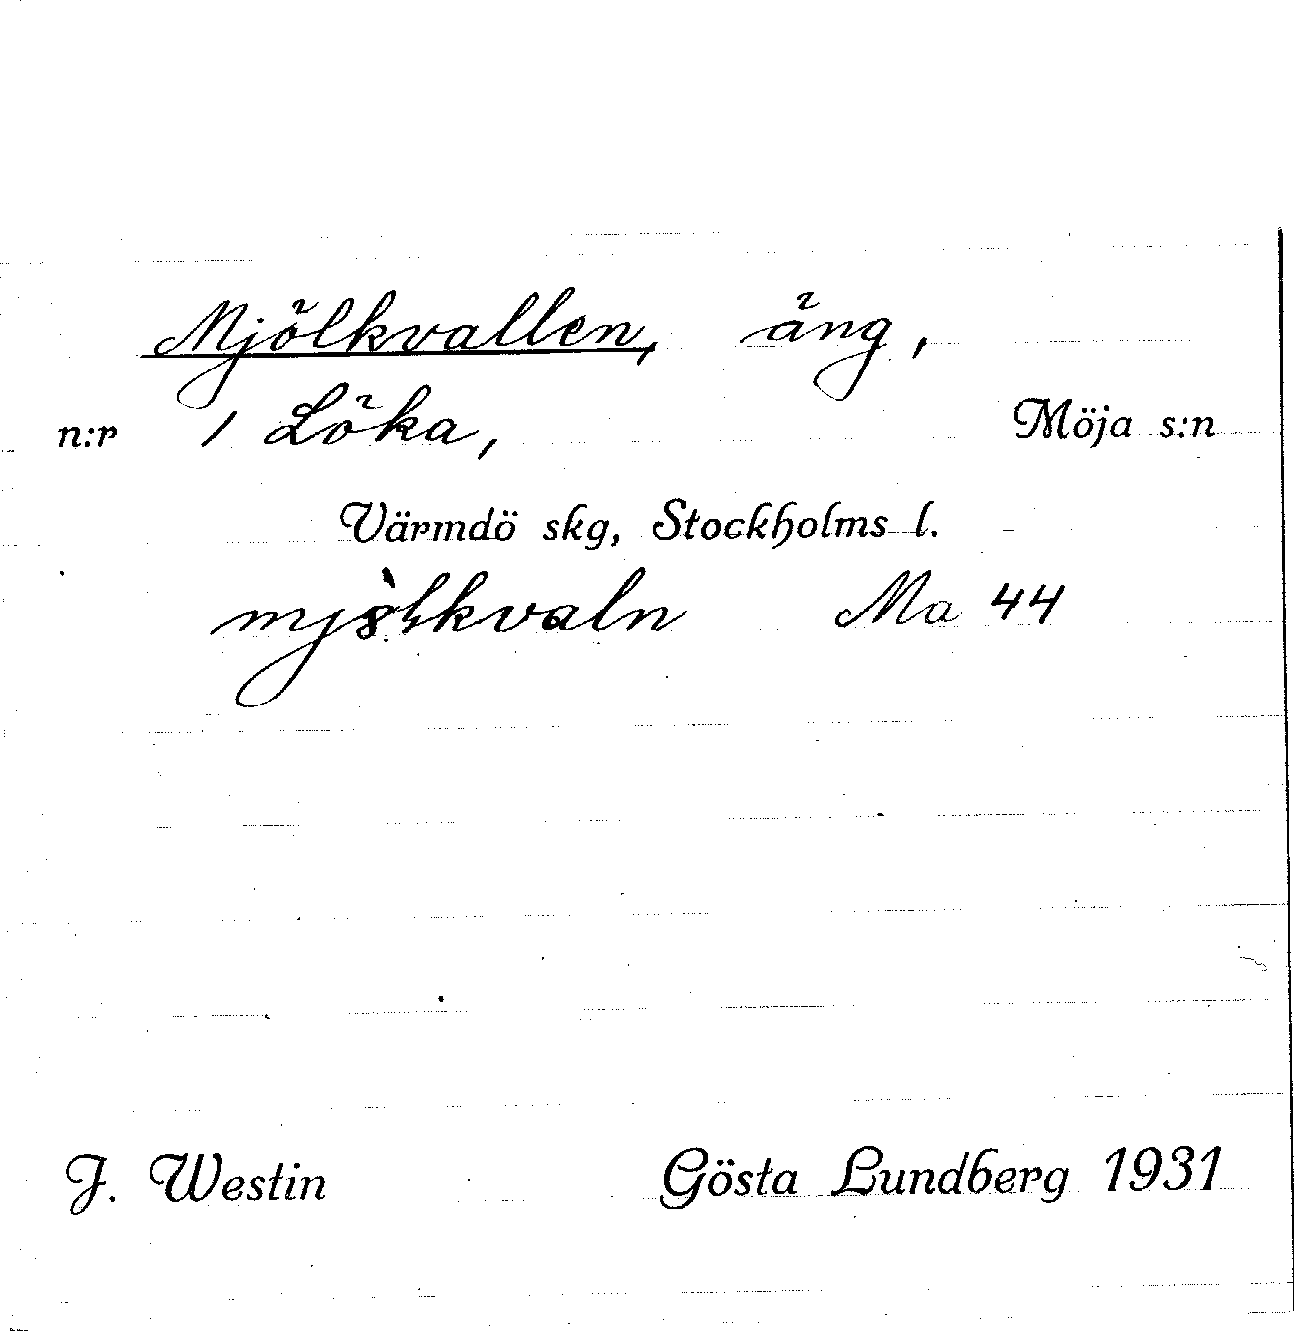 Mjölkvallen, äng,
n:r 1 Löka, Möja s:n
Värmdö skg, Stockholms l.
mjò̀lkvaln Ma 44
J. Westin Gösta Lundberg 1931